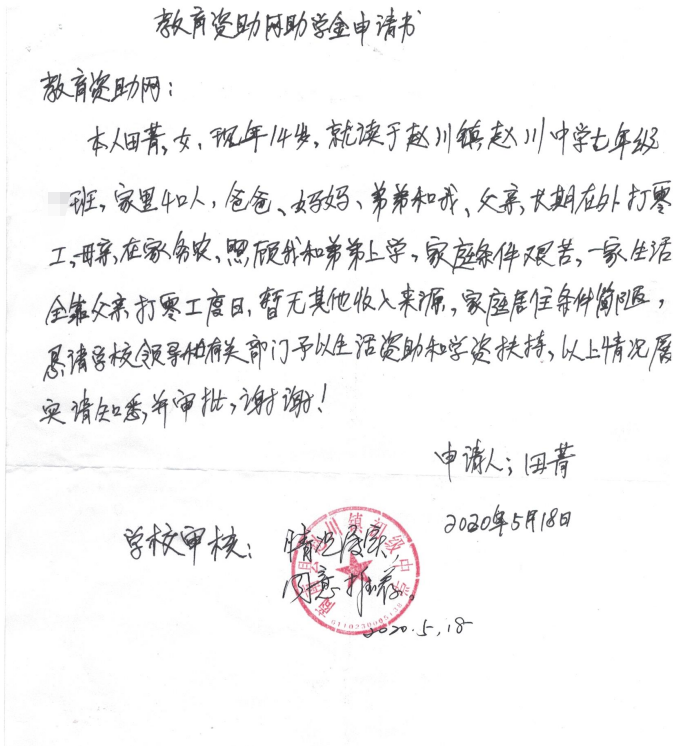 教育资助网助学金申请书
教育资助网：
本人田菁，女，现年14岁，就读于赵川镇赵川中学七年级
班，家里4口人，爸爸、妈妈、弟弟和我、父亲，长期在外打零
工，母亲，在家务农，照顾我和弟弟上学，家庭条件艰苦，一家生活
全靠父亲打零工度日，暂无其他收入来源，家庭居住条件简陋，
恳请学校领导和有关部门予以生活资助和学资扶持，以上情况属
实请知悉，并审批，谢谢！
申请人：田菁
2020年5月18日
学校审核：情况属实，
同意推荐。
2020.5.18
川镇初级中学